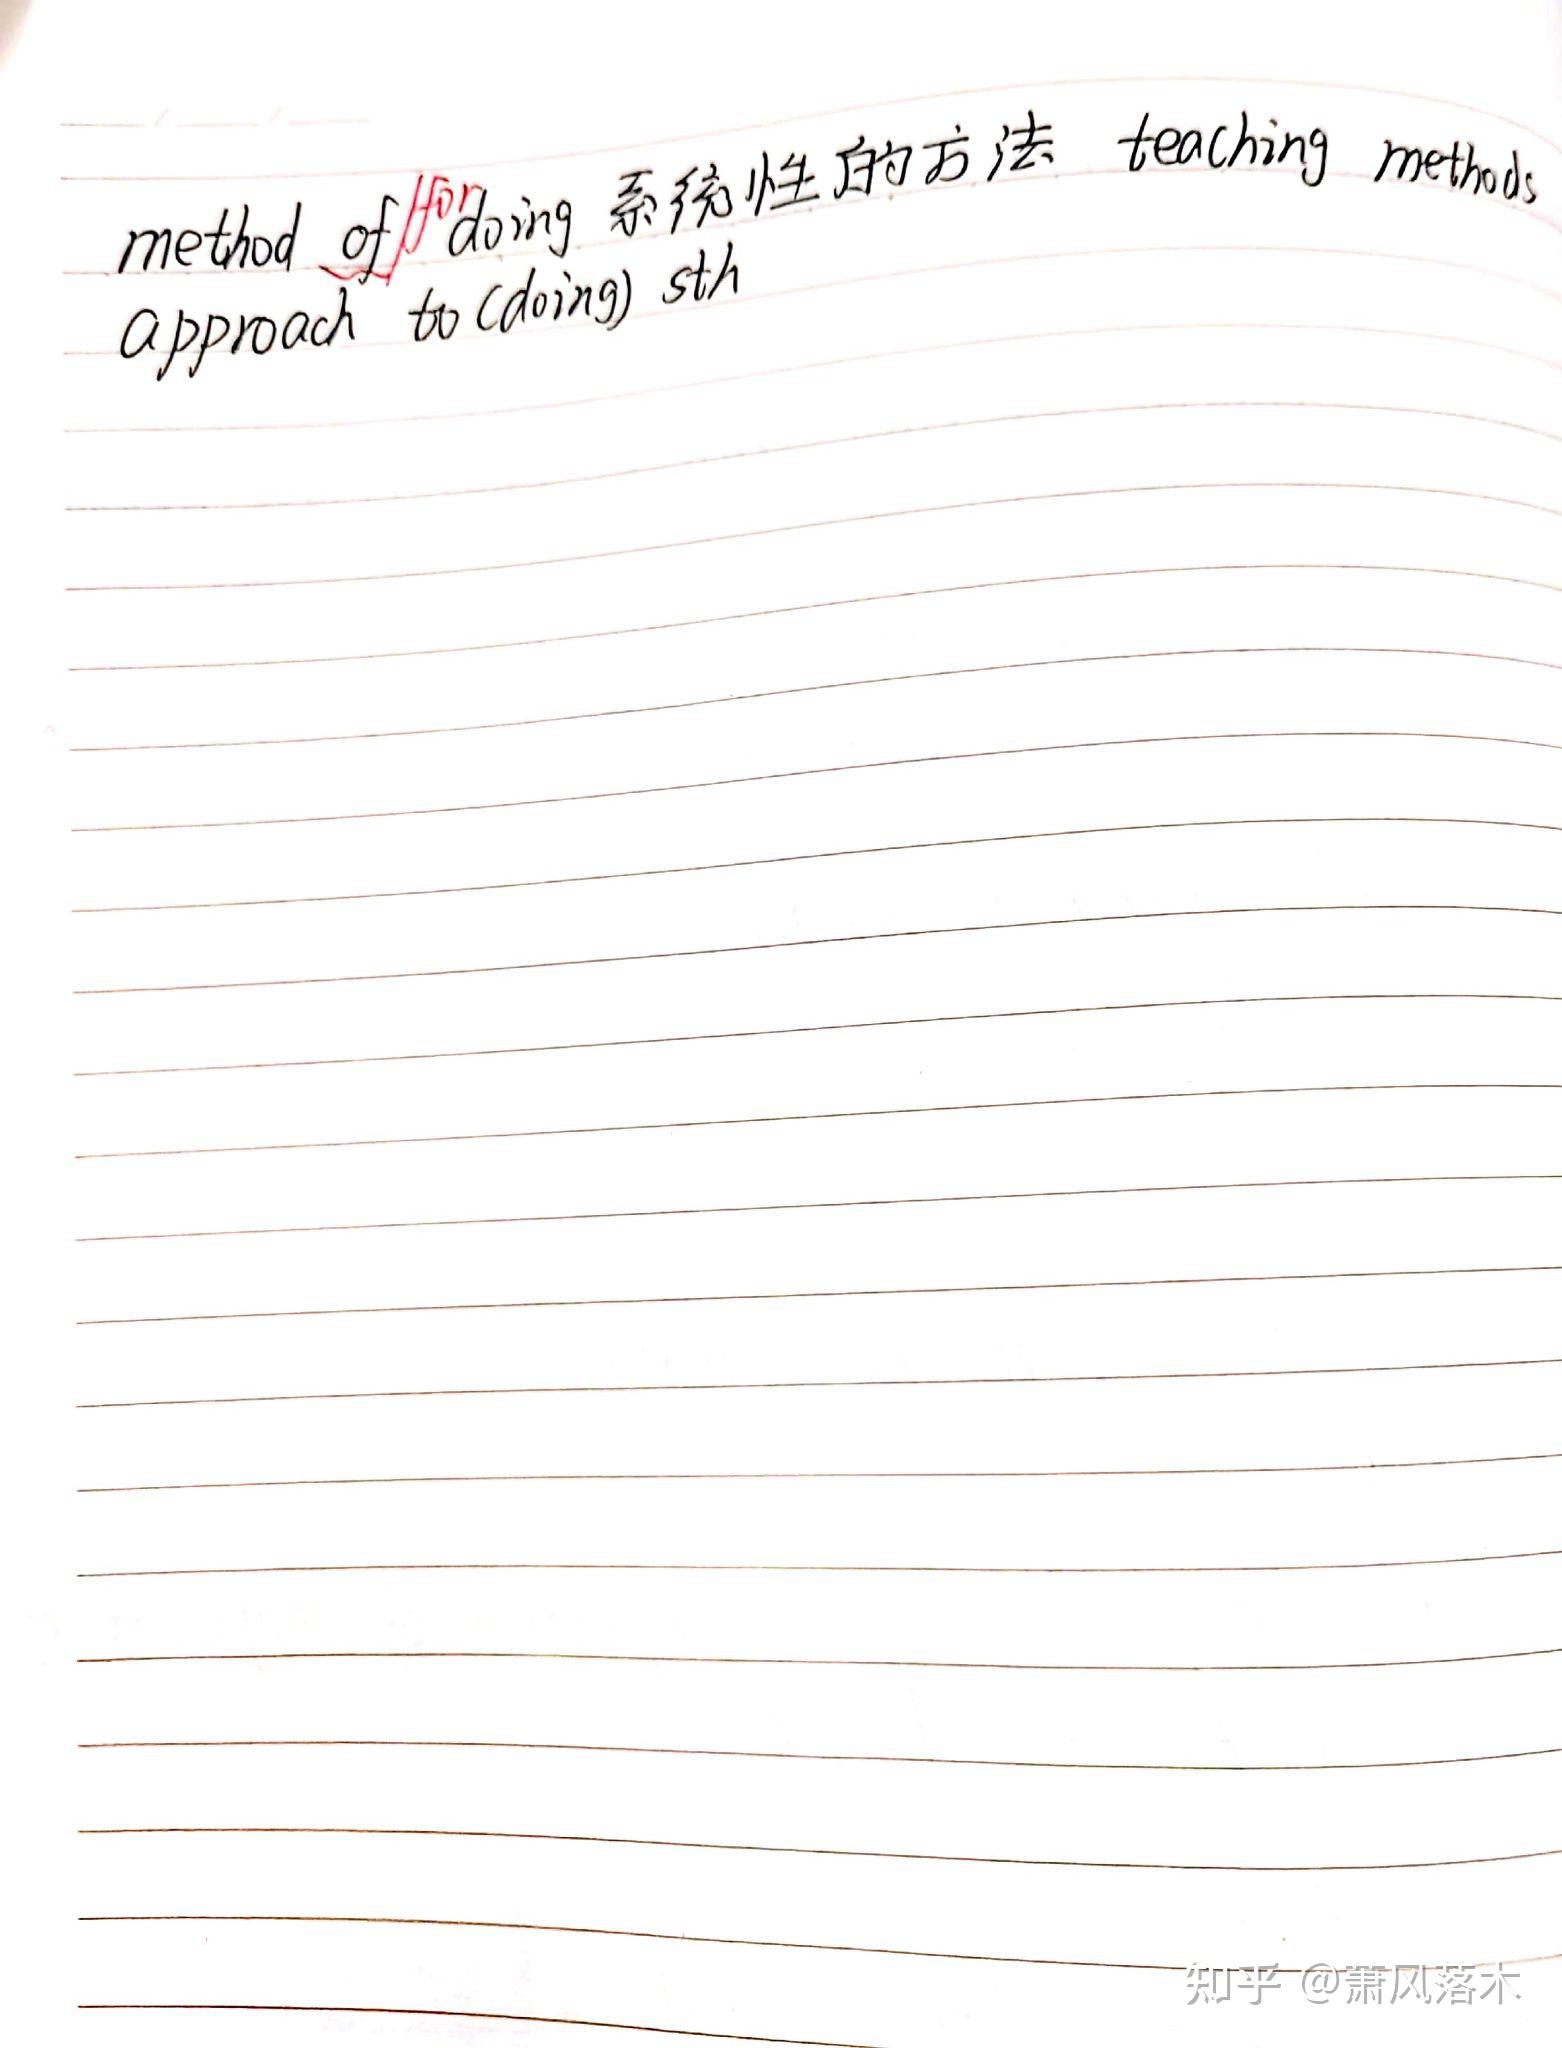 method of/for doing 系统性的方法 teaching methods
approach to (doing) sth
知乎 @萧风落木